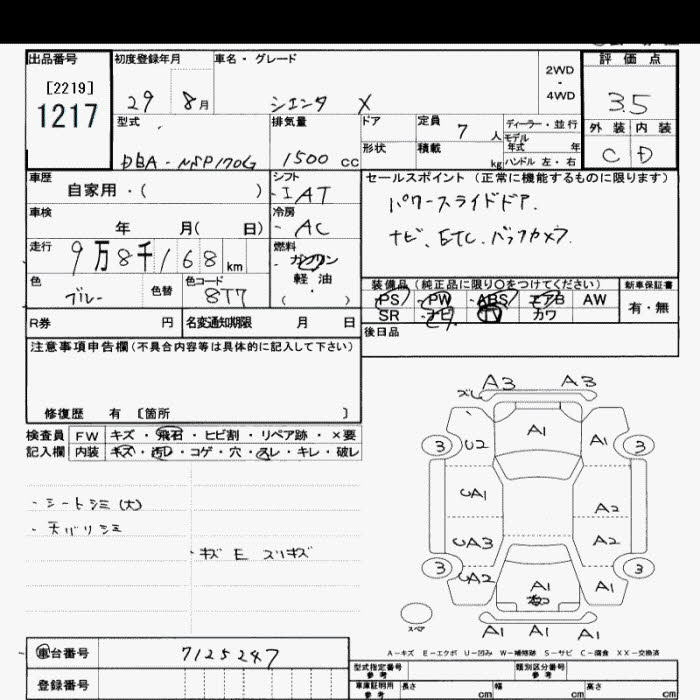 出品番号 初度登録年月 車名・グレード 評価点
[2219]
1217
29 8月 シエンタ X 2WD・4WD 3.5
型式 排気量 ドア 定員 7 人 ディーラー・並行 外装 内装
モデル年式 年
形状 積載 kg ハンドル 左・右 C D
DBA-NSP170G 1500 cc
車歴 シフト セールスポイント(正常に機能するものに限ります)
自家用・( ) IAT パワースライドドア.
車検 冷房 ナビ、ETC.バックカメラ.
年 月( 日) AC
走行 燃料
9万8千168km ガソリン
軽油
( )
色 色替 色コード 装備品(純正品に限り○をつけてください) 新車保証書
ブルー 8T7 PS PW ABS エアB AW 有・無
SR ナビ TV カワ
R券 円 名変通知期限 月 日 後日品
注意事項申告欄(不具合内容等は具体的に記入して下さい)
修復歴 有 〔箇所 〕
検査員 FW キズ・飛石・ヒビ割・リペア跡・×要
記入欄 内装 キズ・汚レ・コゲ・穴・スレ・キレ・破レ
・シートシミ(大)
・天バリシミ
・キズ E スリキズ
ズレ A3 A3
A1 A1
3 U2 3
UA1 A2
UA3 A2
3 UA2 A1 A1 3
スペア A1 A1 A1
A-キズ E-エクボ U-凹み W-補修跡 S-サビ C-腐食 XX-交換済
車台番号 7125247
型式指定番号 参考 類別区分番号 参考
登録番号
車庫証明用 参考 長さ cm 幅 cm 高さ cm